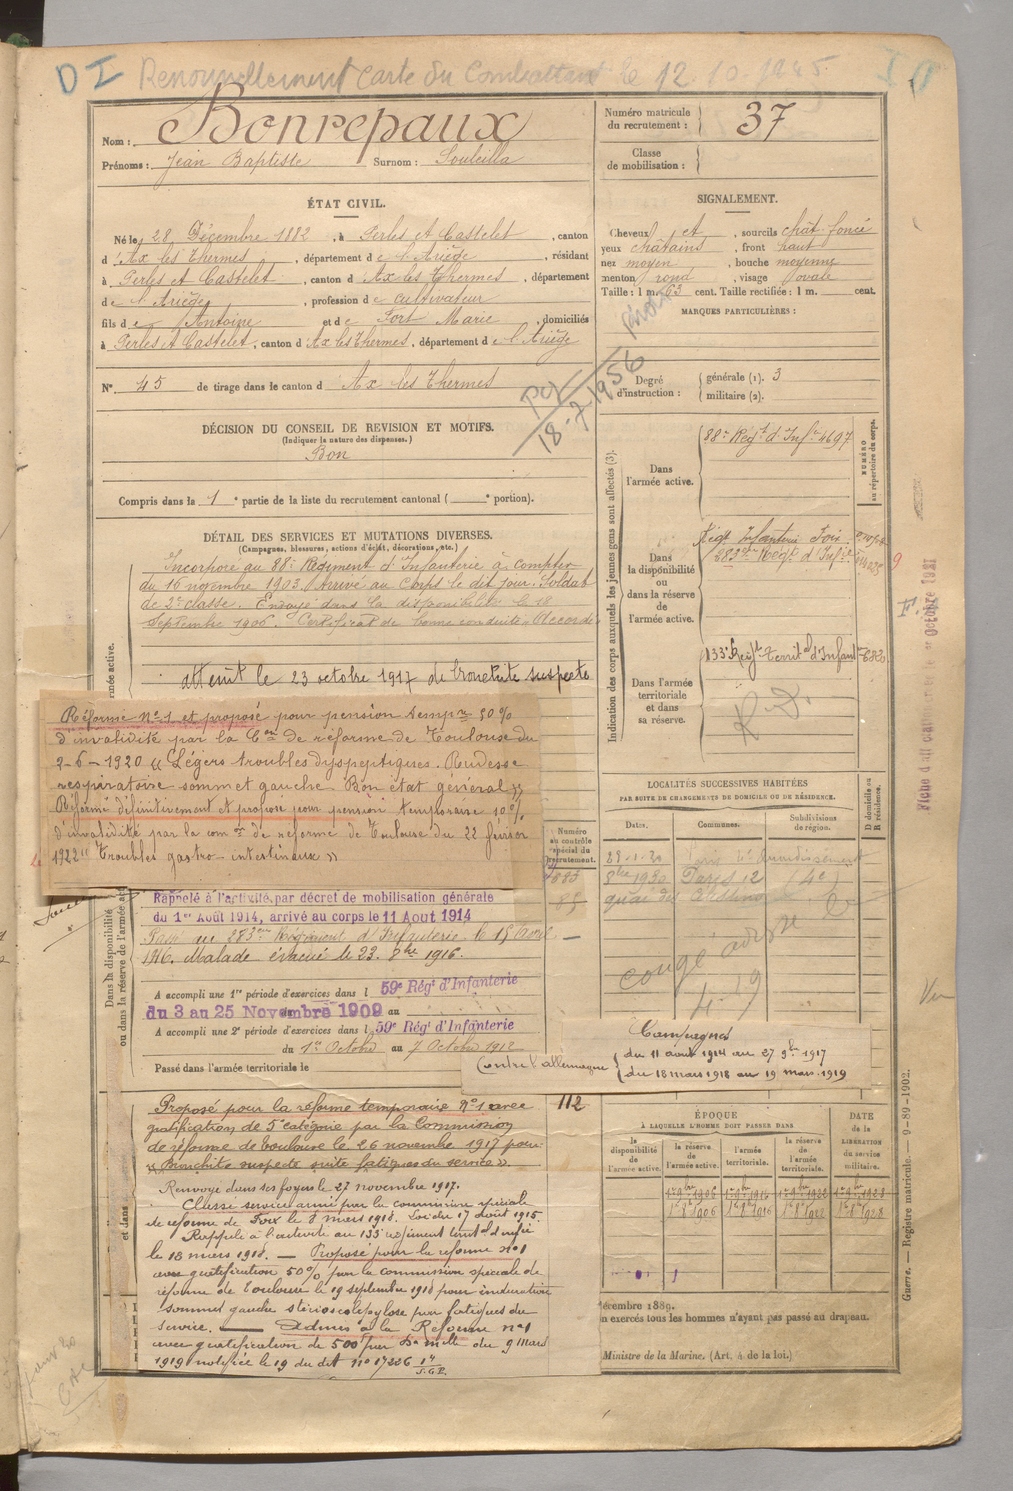 D I Renouvellement Carte du Combattant le 12.10.1945.
Nom : Bonrepaux
Prénoms : Jean Baptiste Surnom : Souleilla
Numéro matricule du recrutement : 37
Classe de mobilisation :
ÉTAT CIVIL.
Né le 28 Décembre 1882, à Perles et Castelet, canton
d'Ax les Thermes, département de l'Ariège, résidant
à Perles et Castelet, canton d'Ax les Thermes, département
de l'Ariège, profession de cultivateur
fils de Antoine et de Fort Marie, domiciliés
à Perles et Castelet, canton d'Ax les Thermes, département de l'Ariège
N° 45 de tirage dans le canton d'Ax les Thermes
SIGNALEMENT.
Cheveux et, sourcils chât. foncé
yeux châtains, front haut
nez moyen, bouche moyenne
menton rond, visage ovale
Taille : 1 m. 63 cent. Taille rectifiée : 1 m. cent.
MARQUES PARTICULIÈRES :
18-7-1956
Degré d'instruction : générale (1). 3
militaire (2).
DÉCISION DU CONSEIL DE REVISION ET MOTIFS.
(Indiquer la nature des dispenses.)
Bon
Compris dans la 1e partie de la liste du recrutement cantonal ( e portion).
DÉTAIL DES SERVICES ET MUTATIONS DIVERSES.
(Campagnes, blessures, actions d'éclat, décorations, etc.)
Incorporé au 88e Régiment d'Infanterie à compter
du 16 novembre 1903. Arrivé au Corps le dit jour. Soldat
de 2e classe. Envoyé dans la disponibilité le 18
Septembre 1906. Certificat de bonne conduite. Accordé
atteint le 23 octobre 1917 de bronchite suspecte
Réformé n° 1 et proposé pour pension temp. 20%
d'invalidité par la Con de réforme de Toulouse du
2-6-1920 « Légers troubles dyspeptiques. Rudesse
respiratoire sommet gauche Bon état général »
Réformé définitivement et proposé pour pension temporaire 10%
d'invalidité par la com on de réforme de Toulouse du 22 février
1922 « Troubles gastro-intestinaux »
Rappelé à l'activité, par décret de mobilisation générale
du 1er Août 1914, arrivé au corps le 11 Aout 1914
Passé au 283me Régiment d'Infanterie le 15 Avril
1916. Malade évacué le 23. 8bre 1916.
A accompli une 1re période d'exercices dans l 59e Régt d'Infanterie
du 3 au 25 Novembre 1909 au
A accompli une 2e période d'exercices dans l 59e Régt d'Infanterie
du 1er Octobre au 7 Octobre 1912
Passé dans l'armée territoriale le
Proposé pour la réforme temporaire N° 1 avec
gratification de 5e catégorie par la Commission
de réforme de Toulouse le 26 novembre 1917 pour
« Bronchite suspecte suite fatigues du service ».
Renvoyé dans ses foyers le 27 novembre 1917.
Classé service armé par la commission spéciale
de réforme de Foix le 8 mars 1918. Loi du 17 août 1915.
Rappelé à l'activité au 133e régiment territ al d'infie
le 18 mars 1918. — Proposé pour la réforme n° 1
avec gratification 50% par la commission spéciale de
réforme de Toulouse le 19 septembre 1918 pour induration
sommet gauche pour fatigues du
service. — Admis à la Réforme n° 1
avec gratification de 500f par Don mlle du 9 mars
1919 notifiée le 19 du dit N° 17226
Indication des corps auxquels les jeunes gens sont affectés (3).
NUMÉRO au répertoire du corps.
Dans l'armée active.
88e Régt d'Infie 4697
Dans la disponibilité ou dans la réserve de l'armée active.
Régt Infanterie Foix
283e Régt d'Infie
Dans l'armée territoriale et dans sa réserve.
133e Regt Territ al d'Infant
Fiche d'allocation octobre 1921
LOCALITÉS SUCCESSIVES HABITÉES
PAR SUITE DE CHANGEMENTS DE DOMICILE OU DE RÉSIDENCE.
Dates. Communes. Subdivisions de région. D domicile ou R résidence.
Numéro au contrôle spécial du recrutement.
Paris arrondissement
8bre 1930 Paris 12 (4e)
quai des Célestins
Campagnes
Contre l'allemagne du 11 août 1914 au 27 9bre 1917
du 18 mars 1918 au 19 mars 1919
112
ÉPOQUE
À LAQUELLE L'HOMME DOIT PASSER DANS
la disponibilité de l'armée active. la réserve de l'armée active. l'armée territoriale. la réserve de l'armée territoriale. DATE de la LIBÉRATION du service militaire.
1er 9bre 1906 1er 9bre 1916 1er 9bre 1922 1er 9bre 1928
1er 8bre 1906 1er 8bre 1916 1er 8bre 1922 1er 8bre 1928
écembre 1889.
en exercés tous les hommes n'ayant pas passé au drapeau.
Ministre de la Marine. (Art. 4 de la loi.)
Guerre. — Registre matricule. — 9-89-1902.
Dans la disponibilité ou dans la réserve de l'armée act